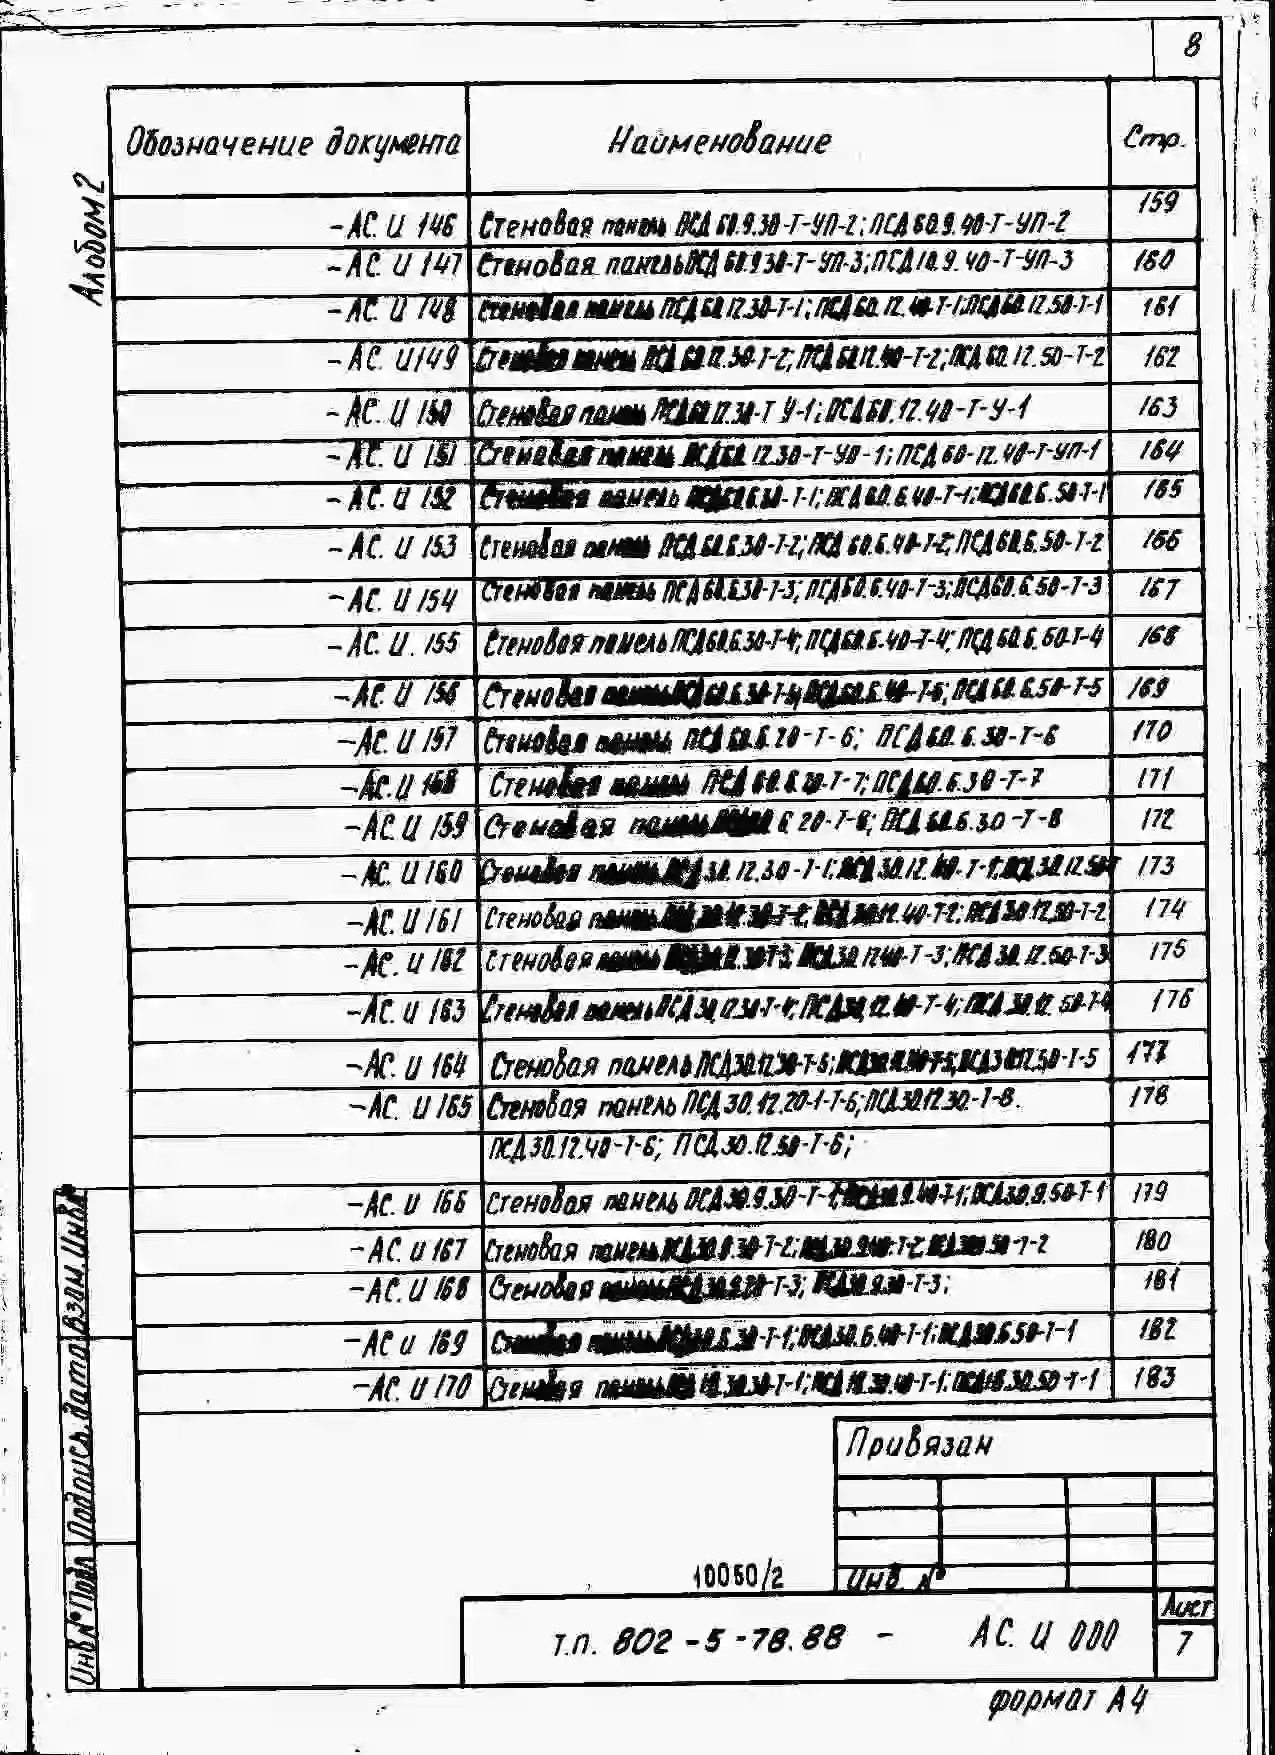 8
Альбом 2
Обозначение документа Наименование Стр.
-АС. И 146 Стеновая панель ПСД 60.9.30-Т-УП-2; ПСД 60.9.40-Т-УП-2 159
-АС. И 147 Стеновая панель ПСД 60.9.30-Т-УП-3; 9.40-Т-УП-3 160
-АС. И 148 Стеновая панель ПСД 60.12.30-Т-1; ПСД 60.12.40-Т-1; ПСД 60.12.50-Т-1 161
-АС. И 149 Стеновая панель ПСД 60.12.30-Т-2; ПСД 60.12.40-Т-2; ПСД 60.12.50-Т-2 162
-АС. И 150 Стеновая панель ПСД 60.12.30-Т У-1; ПСД 60.12.40-Т-У-1 163
-АС. И 151 Стеновая панель ПСД 60 12.30-Т- ПСД 60-12.40-Т-УП-1 164
-АС. И 152 Стеновая панель ПСД 60.6.40-Т-1; ПСД 60.6.50-Т-1 165
-АС. И 153 Стеновая панель ПСД 60.6.30-Т-2; ПСД 60.6.40-Т-2; ПСД 60.6.50-Т-2 166
-АС. И 154 Стеновая панель ПСД 60.6.30-Т-3; ПСД 60.6.40-Т-3; ПСД 60.6.50-Т-3 167
-АС. И. 155 Стеновая панель ПСД 60.6.30-Т-4; ПСД 60.6.40-Т-4; ПСД 60.6.50-Т-4 168
-АС. И 156 Стеновая панель ПСД 60.6.50-Т-5 169
-АС. И 157 Стеновая панель ПСД 60.6.20-Т-6; ПСД 60.6.30-Т-6 170
-АС. И 158 Стеновая панель ПСД 60.6.20-Т-7; ПСД 60.6.30-Т-7 171
-АС. И 159 Стеновая панель 6 20-Т-8; ПСД 60.6.30-Т-8 172
-АС. И 160 Стеновая панель ПСД 30.12.30-Т-1; ПСД 30.12.40-Т-1; ПСД 30.12.50-Т 173
-АС. И 161 Стеновая панель ПСД 30.12.40-Т-2; ПСД 30.12.50-Т-2 174
-АС. И 162 Стеновая панель ПСД 30.12.50-Т-3 175
-АС. И 163 Стеновая панель ПСД 30.12.30-Т-4; ПСД 30.12.40-Т-4; ПСД 30.12.50-Т-4 176
-АС. И 164 Стеновая панель ПСД 30.12.30-Т-5; 177
-АС. И 165 Стеновая панель ПСД 30.12.20-1-Т-6; ПСД 30.12.30-Т-6. 178
ПСД 30.12.40-Т-6; ПСД 30.12.50-Т-6;
-АС. И 166 Стеновая панель ПСД 30.9.30-Т-1; ПСД 30.9.50-Т-1 179
-АС. И 167 Стеновая панель ПСД 30.9.30-Т-2; 180
-АС. И 168 Стеновая панель 181
-АС И 169 Стеновая панель ПСД 30.6.40-Т-1; ПСД 30.6.50-Т-1 182
-АС. И 170 Стеновая панель 183
Взам. Инв№
Подпись, дата
Инв № Подл
Привязан
Инв. №
10050/2
Т.П. 802-5-78.88 - АС. И 000
Лист
7
формат А4